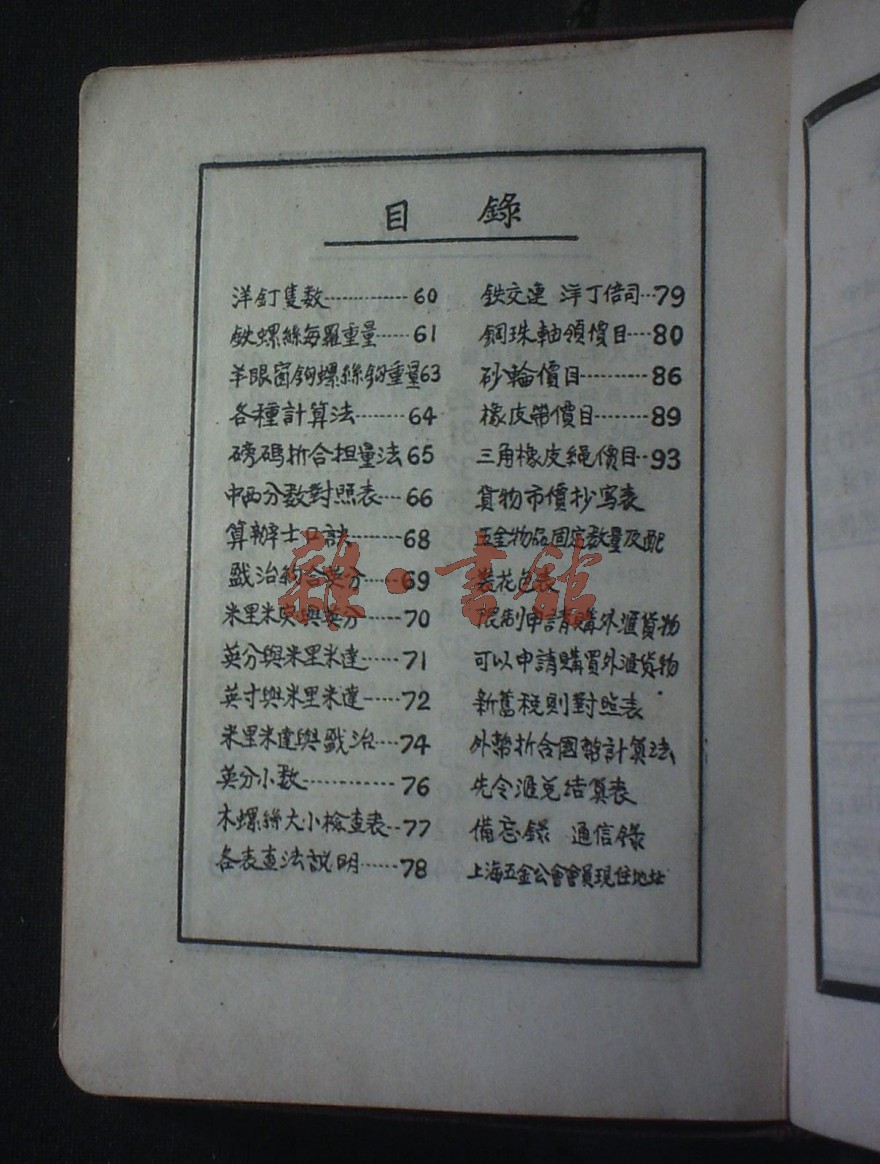 目 錄
洋釘隻数----------60
鉄螺絲每羅重量-----61
羊眼窗鈎螺絲鈎重量63
各種計算法--------64
磅碼折合担量法65
中西分数對照表---66
算辦士口訣-------68
戥治約合英分---69
米里米突與英分----70
英分與米里米達----71
英寸與米里米達--72
米里米達與戥治---74
英分小数-----------76
木螺絲大小檢查表--77
各表查法説明-----78
鉄交連 洋丁佶司--79
鋼珠軸領價目--80
砂輪價目---------86
橡皮帶價目------89
三角橡皮繩價目--93
貨物市價抄写表
五金物品固定数量及配
裝花色表
限制申請購外滙貨物
可以申請購買外滙貨物
新舊稅則對照表
外幣折合國幣計算法
先令滙兑结算表
備忘錄 通信錄
上海五金公會會員現住地址
雜·書館